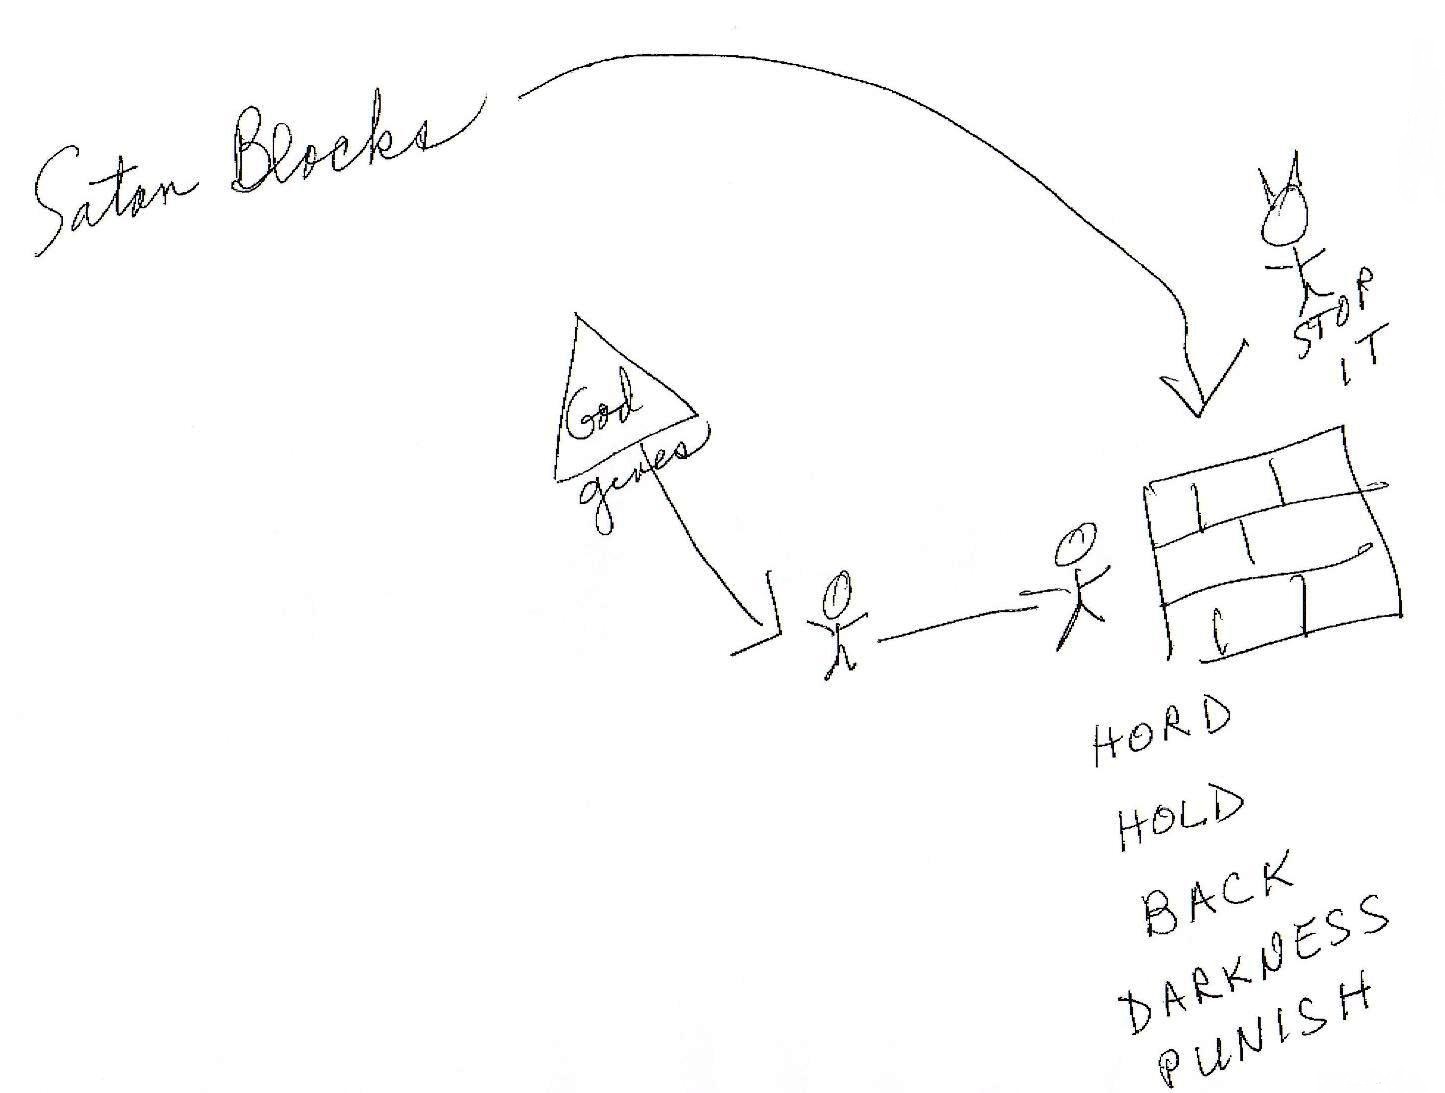 Satan Blocks
STOP
IT
God
gives
HORD
HOLD
BACK
DARKNESS
PUNISH